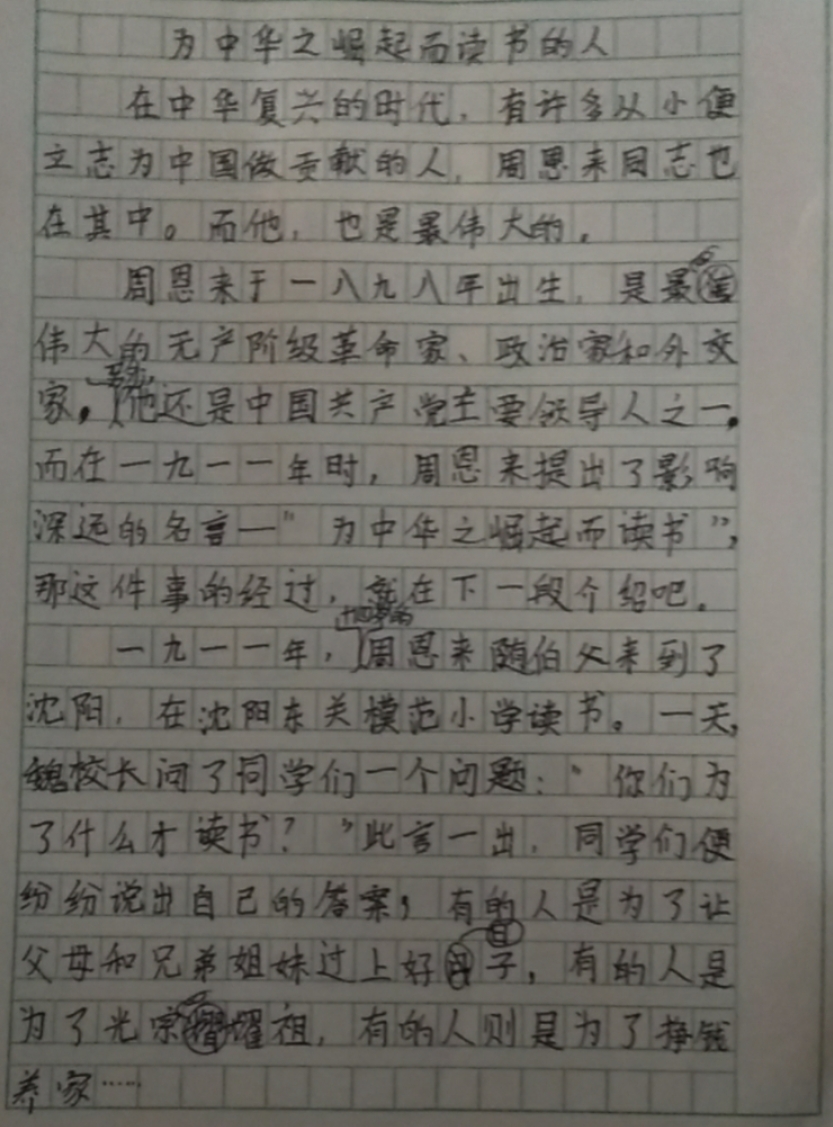 为中华之崛起而读书的人
在中华复兴的时代，有许多从小便
立志为中国做贡献的人，周恩来同志也
在其中。而他，也是最伟大的。
周恩来于一八九八年出生，是最
伟大的无产阶级革命家、政治家和外交
家。他还是中国共产党主要领导人之一。
而在一九一一年时，周恩来提出了影响
深远的名言—“为中华之崛起而读书”，
那这件事的经过，就在下一段介绍吧。
一九一一年，十四岁的周恩来随伯父来到了
沈阳，在沈阳东关模范小学读书。一天，
魏校长问了同学们一个问题：“你们为
了什么才读书？”此言一出，同学们便
纷纷说出自己的答案，有的人是为了让
父母和兄弟姐妹过上好日子，有的人是
为了光宗耀祖，有的人则是为了挣钱
养家……